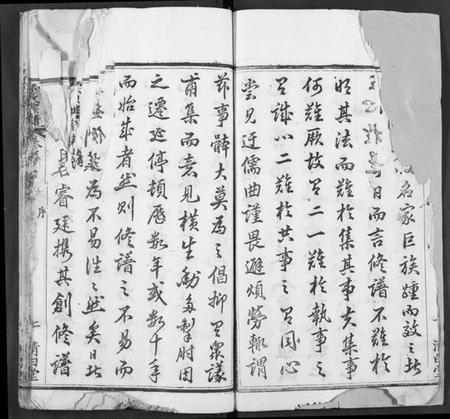 名家巨族踵而效之
日而言修譜不難於
明其法而難於集其事夫集事
何難厥故有二一難於執事之
有誠心二難於共事之有同心
嘗見迂儒曲謹畏避煩勞輒謂
茲事體大莫為之倡抑有眾議
甫集而意見橫生動多掣肘因
之遷延停頓歷數年或數十年
而始成者然則修譜之不易而
為不易也
然矣日
睿廷攜其創修譜
序
清白堂